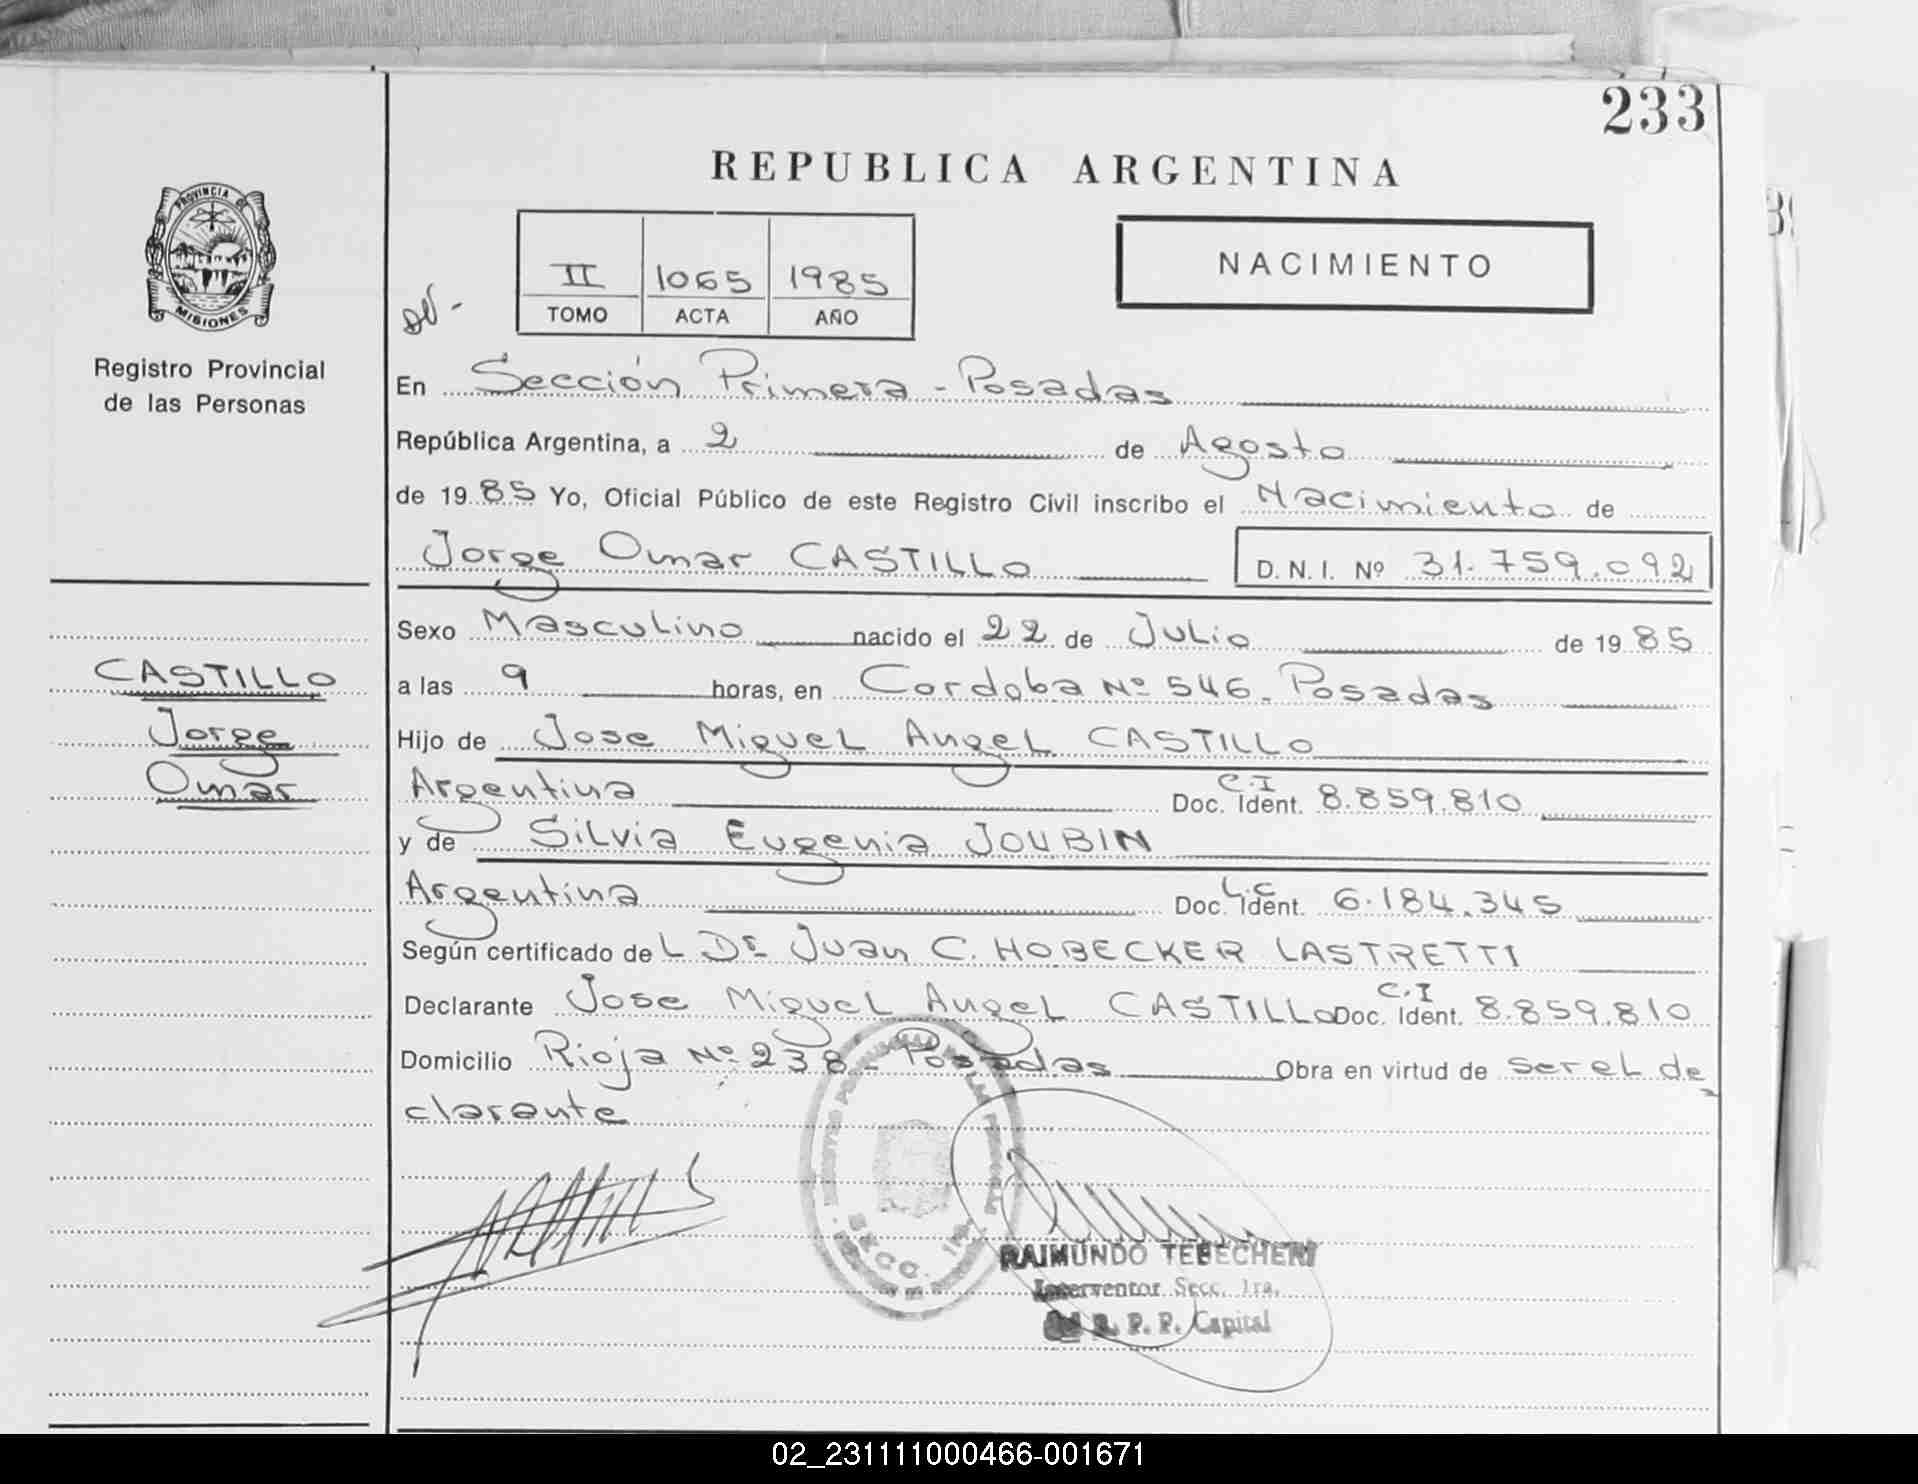 233
REPUBLICA ARGENTINA
PROVINCIA DE
MISIONES
Registro Provincial
de las Personas
II 1065 1985
TOMO ACTA AÑO
NACIMIENTO
En Sección Primera - Posadas
República Argentina, a 2 de Agosto
de 1985 Yo, Oficial Público de este Registro Civil inscribo el Nacimiento de
Jorge Omar CASTILLO D. N. I. Nº 31.759.092
Sexo Masculino nacido el 22 de Julio de 1985
CASTILLO
Jorge
Omar
a las 9 horas, en Cordoba Nº 546 - Posadas
Hijo de Jose Miguel Angel CASTILLO
Argentina Doc. Ident. C.I 8.859.810
y de Silvia Eugenia JOUBIN
Argentina Doc. Ident. L.C 6.184.345
Según certificado del Dr Juan C. HOBECKER LASTRETTI
Declarante Jose Miguel Angel CASTILLO Doc. Ident. C.I 8.859.810
Domicilio Rioja Nº 238 - Posadas Obra en virtud de ser el de-
clarante
SECC. 1ra.
RAIMUNDO TEBECHERI
Interventor Secc. 1ra.
R. P. P. Capital
02_231111000466-001671